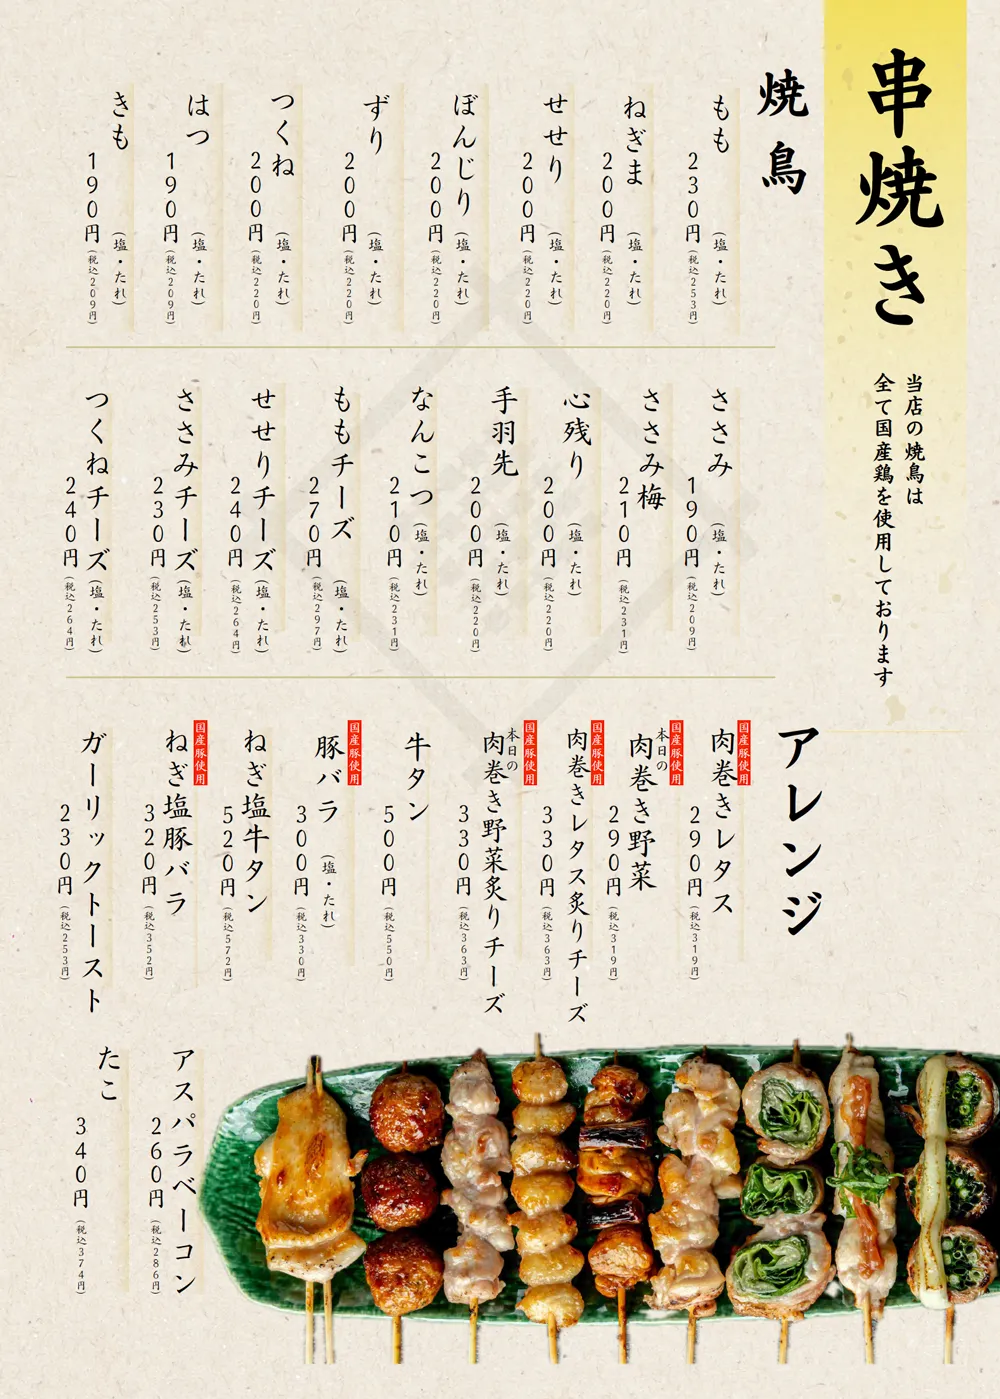 串焼き
当店の焼鳥は
全て国産鶏を使用しております
焼鳥
もも (塩・たれ)
230円 (税込253円)
ねぎま (塩・たれ)
200円 (税込220円)
せせり (塩・たれ)
200円 (税込220円)
ぼんじり (塩・たれ)
200円 (税込220円)
ずり (塩・たれ)
200円 (税込220円)
つくね (塩・たれ)
200円 (税込220円)
はつ (塩・たれ)
190円 (税込209円)
きも (塩・たれ)
190円 (税込209円)
ささみ (塩・たれ)
190円 (税込209円)
ささみ梅
210円 (税込231円)
心残り (塩・たれ)
200円 (税込220円)
手羽先 (塩・たれ)
200円 (税込220円)
なんこつ (塩・たれ)
210円 (税込231円)
ももチーズ (塩・たれ)
270円 (税込297円)
せせりチーズ (塩・たれ)
240円 (税込264円)
ささみチーズ (塩・たれ)
230円 (税込253円)
つくねチーズ (塩・たれ)
240円 (税込264円)
アレンジ
国産豚使用
肉巻きレタス
290円 (税込319円)
国産豚使用
本日の
肉巻き野菜
290円 (税込319円)
国産豚使用
肉巻きレタス炙りチーズ
330円 (税込363円)
国産豚使用
本日の
肉巻き野菜炙りチーズ
330円 (税込363円)
牛タン
500円 (税込550円)
国産豚使用
豚バラ (塩・たれ)
300円 (税込330円)
ねぎ塩牛タン
520円 (税込572円)
国産豚使用
ねぎ塩豚バラ
320円 (税込352円)
ガーリックトースト
230円 (税込253円)
アスパラベーコン
260円 (税込286円)
たこ
340円 (税込374円)